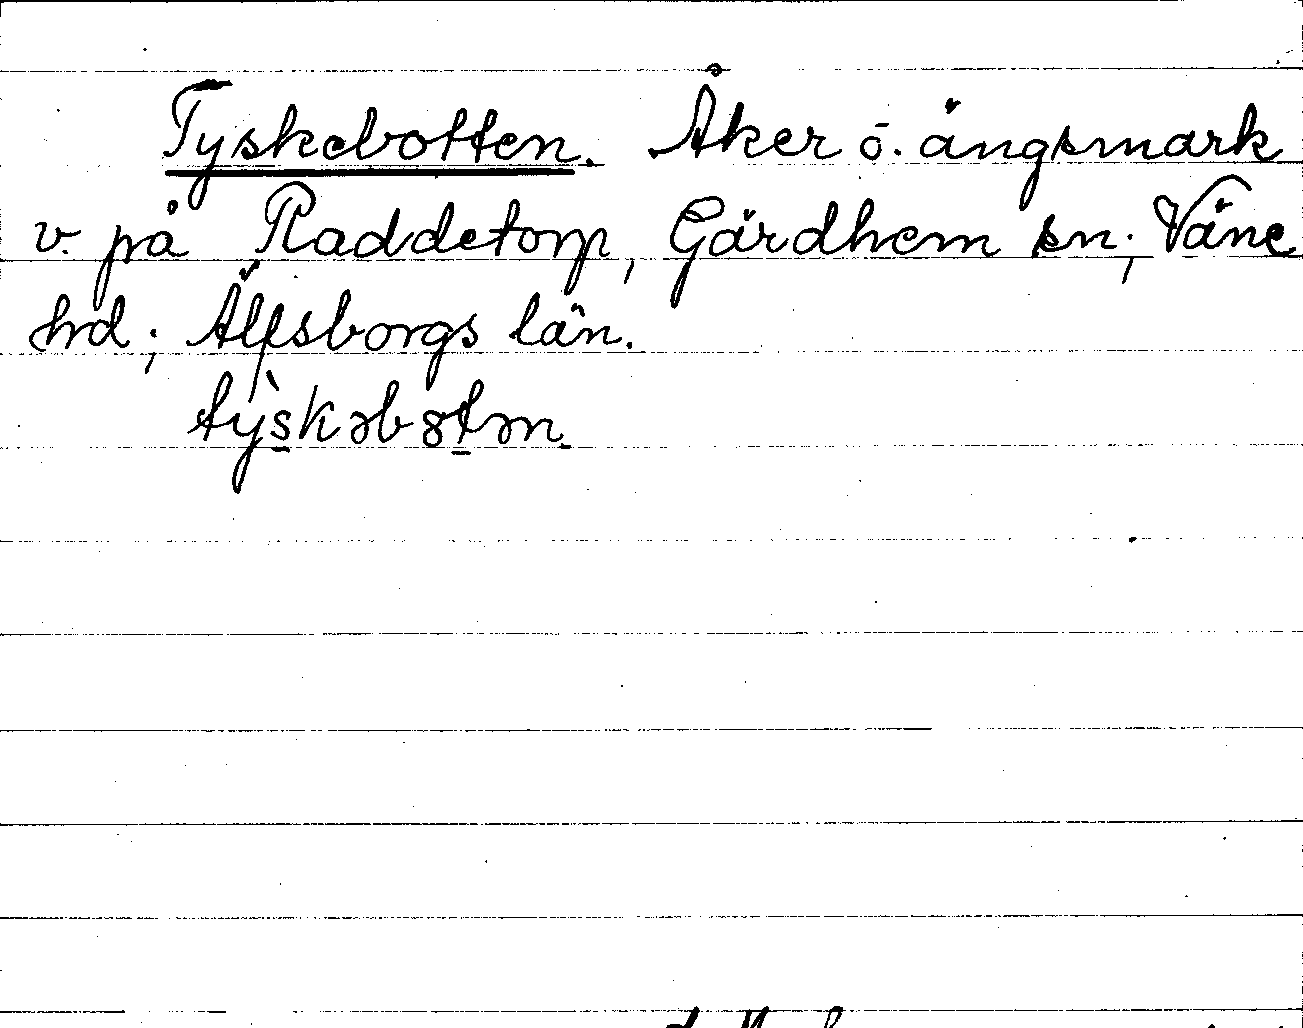 Tyskebotten. Åker ö. ängsmark
v. på Raddetorp, Gärdhem sn; Väne
hd; Älfsborgs län.
tỳ̠skəbot̠ən.